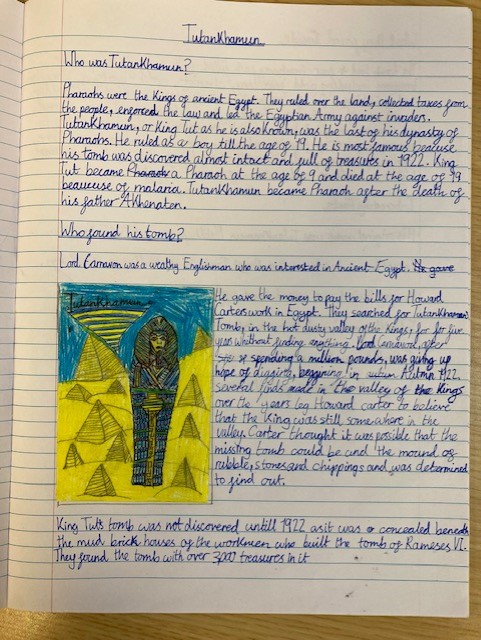 Tutankhamun
Who was Tutankhamun?
Pharaohs were the Kings of ancient Egypt. They ruled over the land, collected taxes from
the people, enforced the law and led the Egyptian Army against invaders.
Tutankhamun, or King tut as he is also known, was the last of his dynasty of
Pharaohs. He ruled as a boy till the age of 19. He is most famous because
his tomb was discovered almost intact and full of treasurs in 1922. King
Tut became Pharaoh a Pharaoh at the age of 9 and died at the age of 19
beaucuse of malaria. Tutankhamun became Pharaoh after the death of
his father Akhenaten.
Who found his tomb?
Lord Carnavon was a wealthy Englishman who was interested in Ancient Egypt. He gave
Tutankhamun
He gave the money to pay the bills for Howard
Carters work in Egypt. They searched for Tutankhamun
Tomb, in the hot dusty valley of the Kings, for five
years whithout finding anything. Lord Carnavon, after
spending a million pounds, was giving up
hope of digging, beggining in Autmn 1922.
several finds made in the valley of the Kings
over the years leg Howard carter to believe
that the King was still somewhere in the
valley. Carter thought it was possible that the
missing tomb could be und the mound of
rubble, stones and chippings and was determined
to find out.
King Tut's tomb was not discovered untill 1922 as it was concealed beneath
the mud brick houses of the workmen who built the tomb of Rameses VI.
They found the tomb with over 3,000 treasures in it